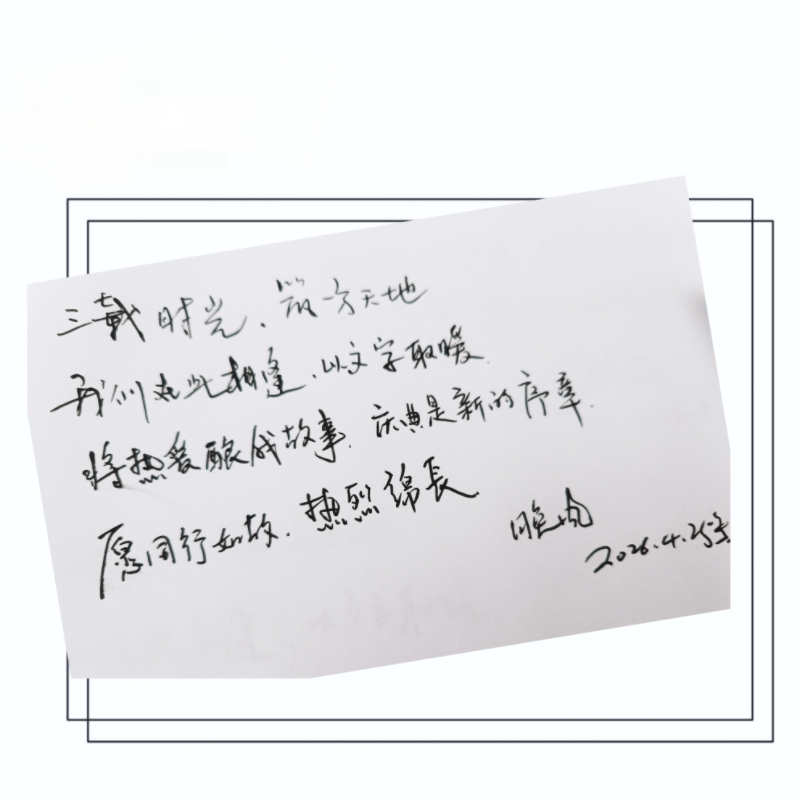 三载时光、筑一方天地
我们在此相逢、以文字取暖.
将热爱酿成故事、庆典是新的序章.
愿同行如故、热烈绵長.
晚
2026.4.25